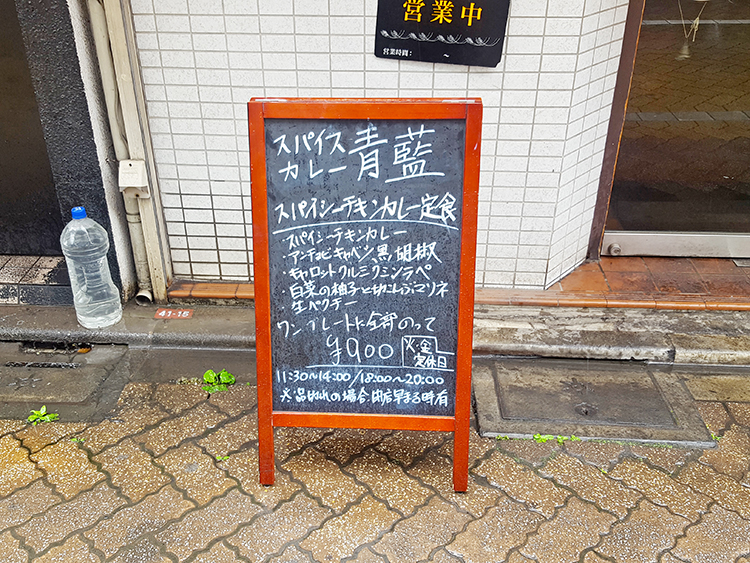 営業中
営業時間: ～
スパイス
カレー 青藍
スパイシーチキンカレー定食
・スパイシーチキンカレー
・アンチョビキャベツ、黒胡椒
・キャロットクルミクミンラペ
・白菜の柚子と切こんぶマリネ
生ペクテー
ワンプレートに全部のって
¥900
火・金
定休日
11:30〜14:00/18:00〜20:00
※品切れの場合、閉店早まる時有
41-15